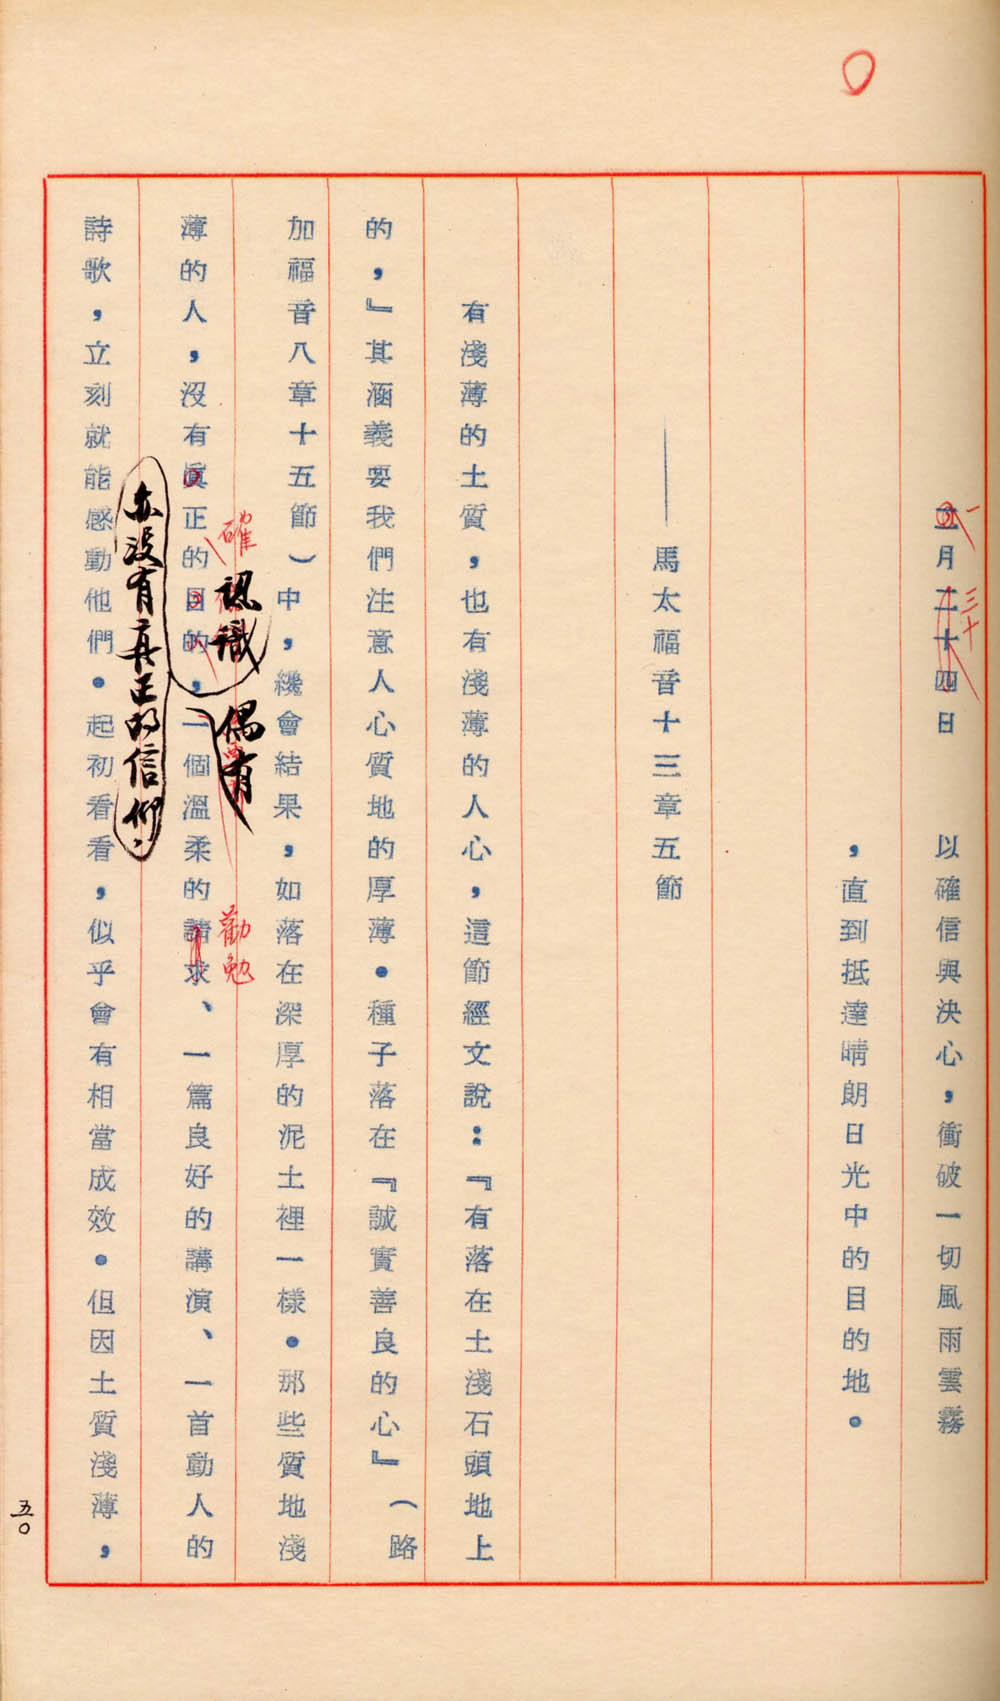 三月二十四日　以確信與決心，衝破一切風雨雲霧
一
三十
，直到抵達晴朗日光中的目的地。
——馬太福音十三章五節
有淺薄的土質，也有淺薄的人心，這節經文說：『有落在土淺石頭地上
的，』其涵義要我們注意人心質地的厚薄。種子落在『誠實善良的心』（路
加福音八章十五節）中，纔會結果，如落在深厚的泥土裡一樣。那些質地淺
確
認識
偶有
勸勉
薄的人，沒有真正的目的，一個溫柔的請求、一篇良好的講演、一首動人的
亦没有真正的信仰。
詩歌，立刻就能感動他們。起初看看，似乎會有相當成效。但因土質淺薄，
五〇